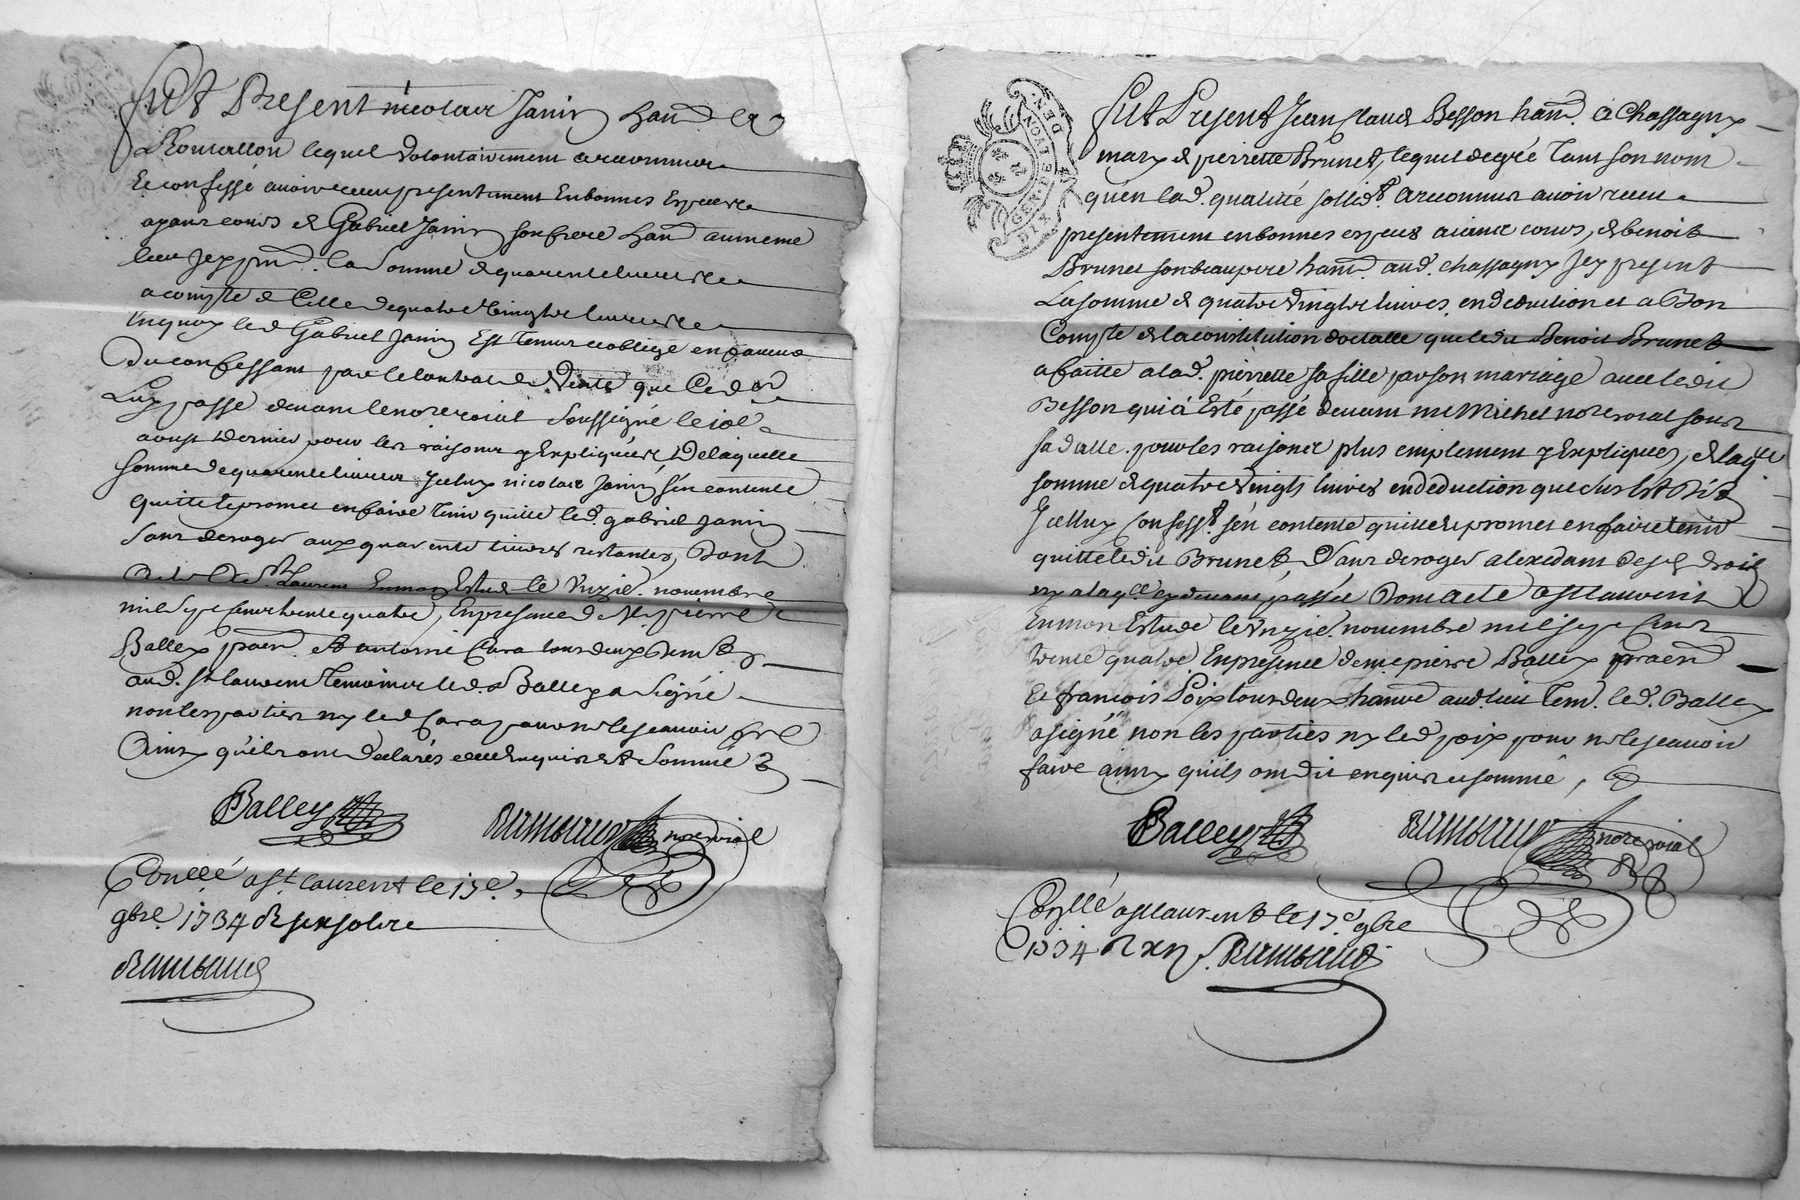 fut Present nicolas Janin hand.
Rontallon lequel volontairement a reconnu
Et confessé avoir receu presentement En bonnes Especes
ayant cours de Gabriel Janin son frere hand au meme
lieu Icy pnt. la Somme de quarente livres
a compte de Celle de quatre vingts livres
En quoy led Gabriel Janin Est Tenu et oblige en faveur
Du confessant par le contrat de Vente que led
Luy passe devant le no.re roial Soussigné le
aoust dernier pour les raisons y Expliquées De laquelle
Somme de quarente livres Icelluy nicolas Janin s'en contente
quitte et promet en faire Tenir quitte led. gabriel Janin
Sans deroger aux quarente livres restantes, Dont
Acte A St. Laurent En mon Estude le unzie. novembre
mil Sept cent trente quatre, En presence de Me. pierre
Balley pratn. Et antoine Cara tous deux Dem.ts
aud. st laurent Temoins led. Balley a signé
non les parties ny led Cara pour ne le scavoir fere
Ainsy qu'ils ont Declarés de ce Enquis Et Sommé
Balley
no.re roial
Conllé a St. laurent le 17e.
9bre. 1734 R six sols
fut Present Jean Claude Besson hand. a Chassagny
mary de pierrette Brunet, lequel de gré Tant son nom
qu'en lad. qualitté sollid.t a reconnu avoir receu
presentement en bonnes especes aiant cours, de benoit
Brunet son beaupere hand. aud. chassagny Icy present
La somme de quatre vingts livres en deduction et a Bon
Compte de la constitution dotalle que ledit Benoit Brunet
a faitte a lad. pierrette sa fille par son mariage avec ledit
Besson qui a Esté passé devant me Michel no.re roial sous
sa datte. pour les raisons plus emplement y Expliquées, de laq.lle
somme de quatre vingts livres en deduction que dessus
Icelluy Confess.t s'en contente quitte et promet en faire tenir
quitte ledit Brunet, Sans deroger
passée Dont acte a St laurent
En mon Estude le unzie. novembre mil sept cent
trente quatre En presence de me pierre Balley pratn
Et françois Poix tous deux aud. lieu Tem. led. Balley
a signé non les parties ny led poix pour ne le scavoir
faire ainsy qu'ils ont dit enquis et sommé,
Balley
no.re roial
Conllé a St laurent le 17e 9bre
1734 R
DEN
LION
GEN